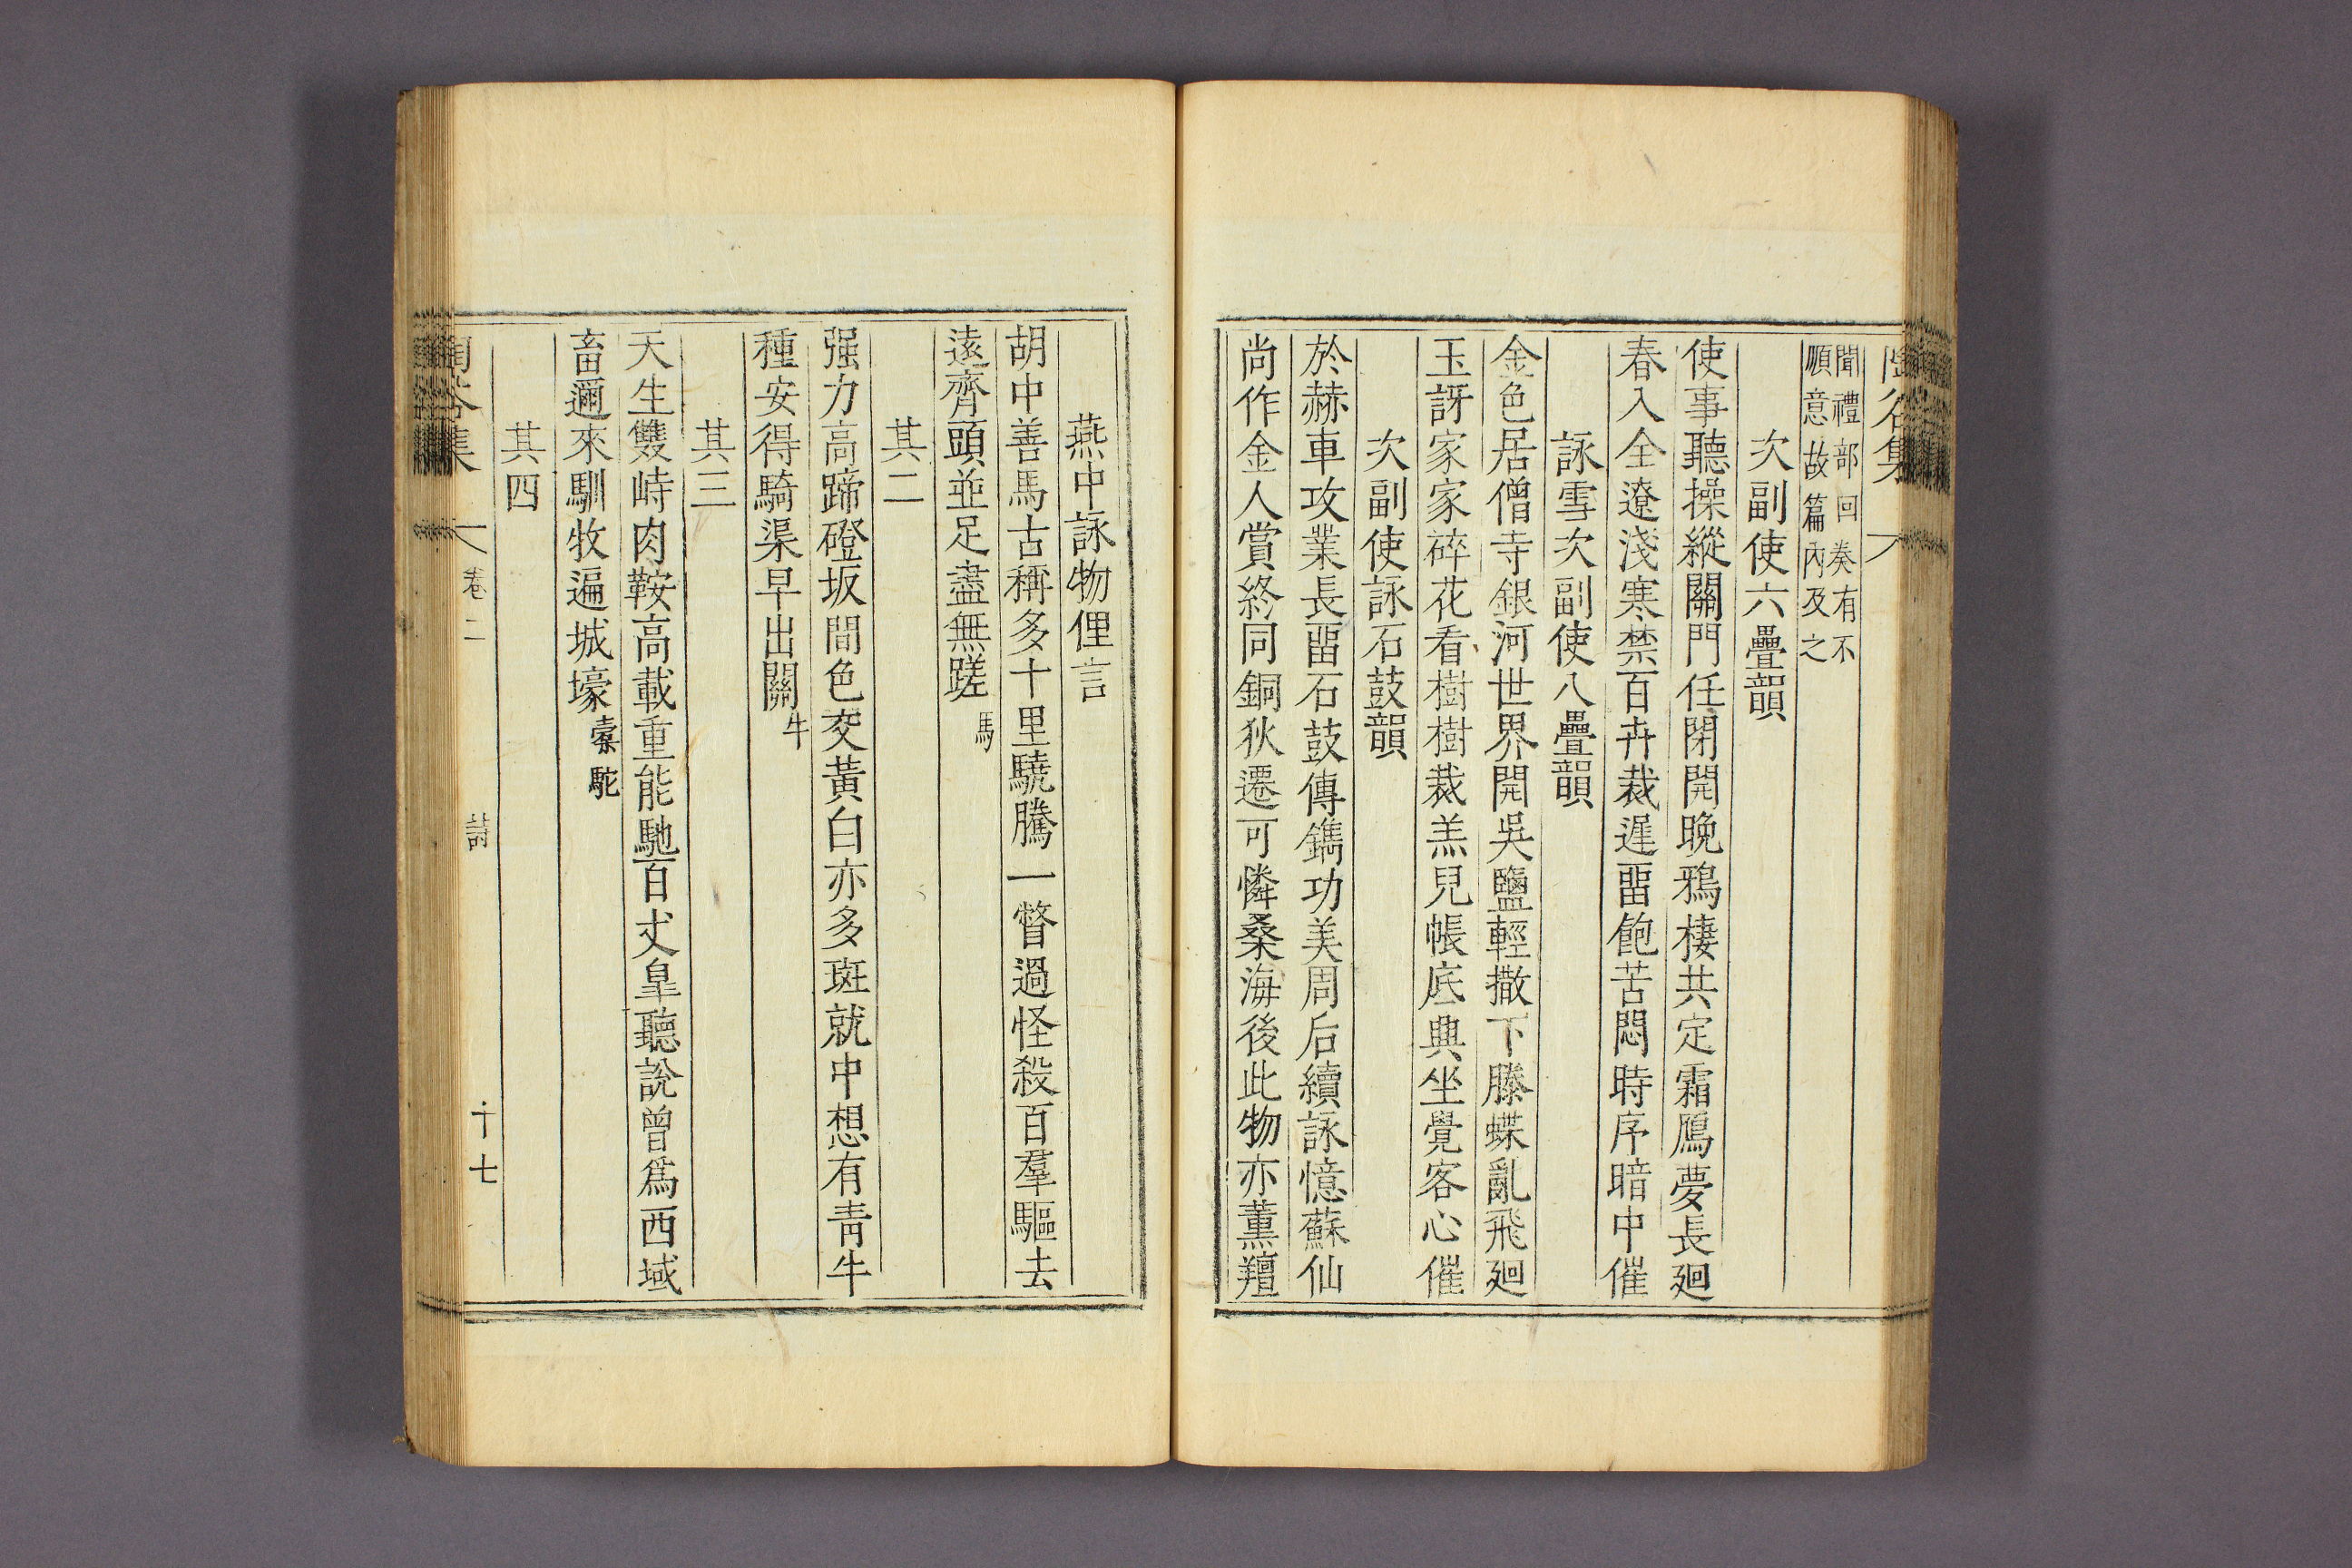 聞禮部回奏有不
順意故篇內及之
次副使六疊韻
使事聽操縱關門任閉開晚鴉棲共定霜鴈夢長廻
春入全遼淺寒禁百卉裁遲畱飽苦悶時序暗中催
詠雪次副使八疊韻
金色居僧寺銀河世界開吳鹽輕撒下滕蝶亂飛廻
玉訝家家碎花看樹樹裁羔兒帳底興坐覺客心催
次副使詠石鼓韻
於赫車攻業長畱石鼓傳鐫功美周后續詠憶蘇仙
尚作金人賞終同銅狄遷可憐桑海後此物亦薰羶
燕中詠物俚言
胡中善馬古稱多十里驍騰一瞥過怪殺百羣驅去
遠齊頭並足盡無蹉馬
其二
强力高蹄磴坂間色交黃白亦多斑就中想有靑牛
種安得騎渠早出關牛
其三
天生雙峙肉鞍高載重能馳百丈皐聽說曾爲西域
畜邇來馴牧遍城壕橐駝
其四
集 卷二 詩 十七